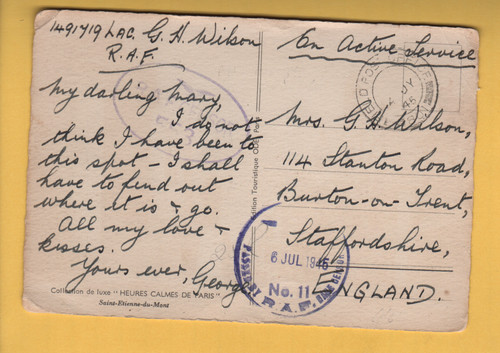 1491719 LAC. G. H. Wilson
R.A.F.
My darling Mary,
I do not
think I have been to
this spot - I shall
have to find out
where it is & go.
All my love &
kisses.
Yours ever, George
Collection de luxe "HEURES CALMES DE PARIS"
Saint-Etienne-du-Mont
On Active Service
FIELD POST
45
Mrs. G. H. Wilson,
114 Stanton Road,
Burton-on-Trent,
Staffordshire,
ENGLAND.
PASSED BY
6 JUL 1945
No. 11
R.A.F.